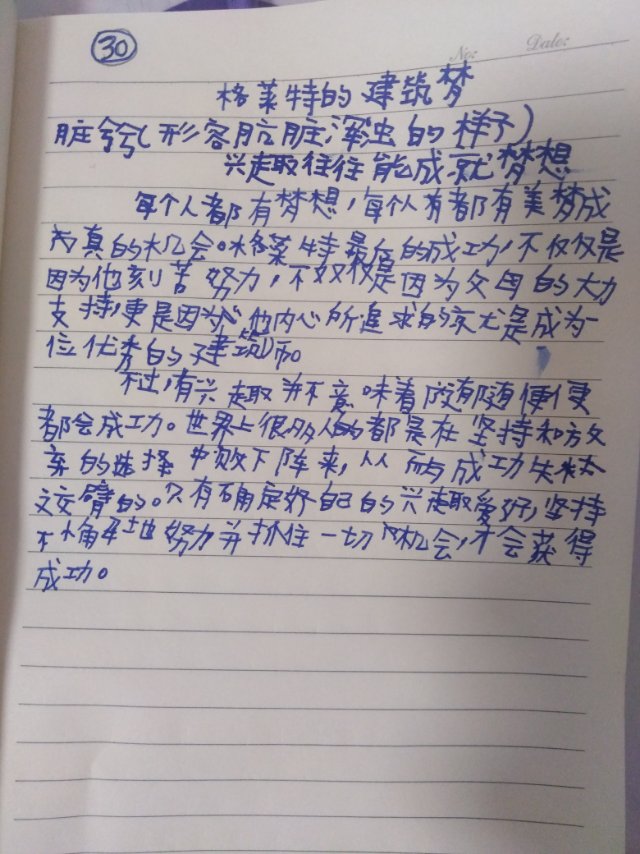 30
No:
Date:
格莱特的建筑梦
脏兮兮(形容肮脏浑浊的样子)
兴趣往往能成就梦想
每个人都有梦想,每个人有都有美梦成
为真的机会。格莱特最后的成功,不仅仅是
因为他刻苦努力,不仅仅是因为父母的大力
支持,更是因为他内心所追求的就是成为一
位优秀的建筑师。
不过,有兴趣并不意味着随随便便
都会成功。世界上很多人的都是在坚持和放
弃的选择中败下阵来,从而与成功失
交臂的。只有确定好自己的兴趣爱好,坚持
不懈地努力并抓住一切机会,才会获得
成功。